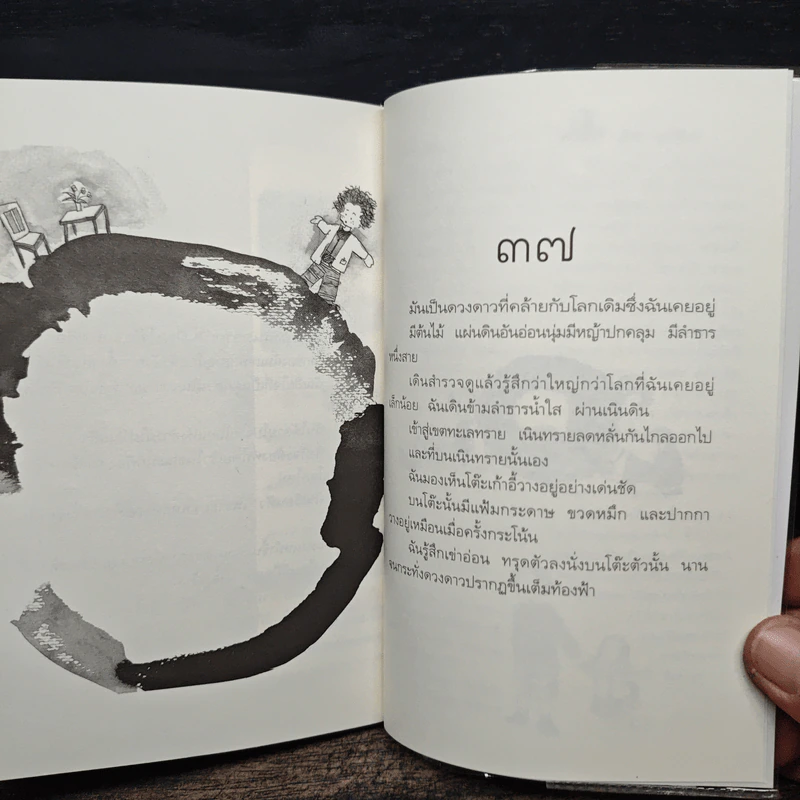 ๓๗
มันเป็นดวงดาวที่คล้ายกับโลกเดิมซึ่งฉันเคยอยู่
มีต้นไม้ แผ่นดินอันอ่อนนุ่มมีหญ้าปกคลุม มีลำธาร
หนึ่งสาย
เดินสำรวจดูแล้วรู้สึกว่าใหญ่กว่าโลกที่ฉันเคยอยู่
เล็กน้อย ฉันเดินข้ามลำธารน้ำใส ผ่านเนินดิน
เข้าสู่เขตทะเลทราย เนินทรายลดหลั่นกันไกลออกไป
และที่บนเนินทรายนั้นเอง
ฉันมองเห็นโต๊ะเก้าอี้วางอยู่อย่างเด่นชัด
บนโต๊ะนั้นมีแฟ้มกระดาษ ขวดหมึก และปากกา
วางอยู่เหมือนเมื่อครั้งกระโน้น
ฉันรู้สึกเข่าอ่อน ทรุดตัวลงนั่งบนโต๊ะตัวนั้น นาน
จนกระทั่งดวงดาวปรากฏขึ้นเต็มท้องฟ้า